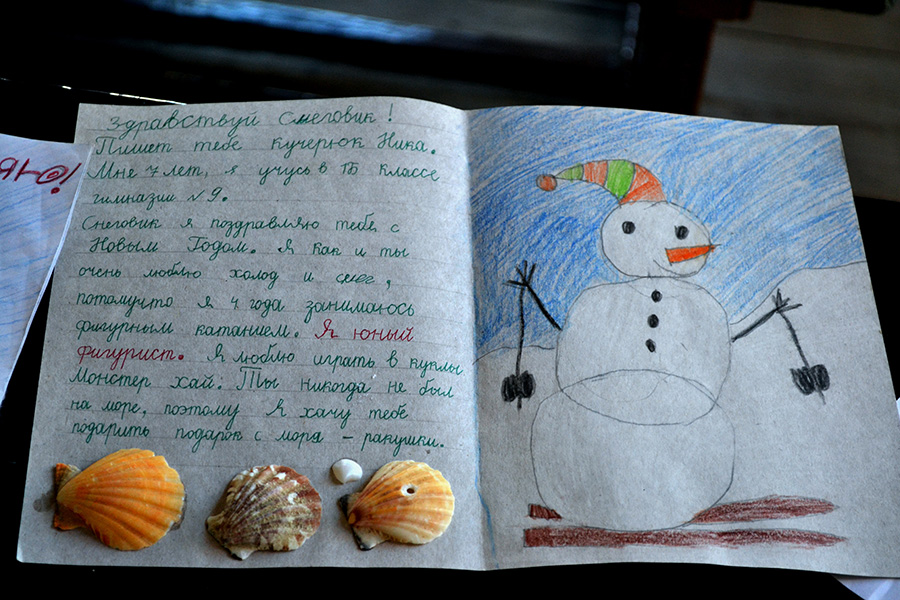 Здравствуй Снеговик!
Пишет тебе кучерюк Ника.
Мне 7 лет, я учусь в 1Б классе
гимназии №9.
Снеговик я поздравляю тебе, с
Новым Годом. Я как и ты
очень люблю холод и снег,
потомучто я 4 года занимаюсь
фигурным катанием. Я юный
фигурист. Я люблю играть в куклы
Монстер хай. Ты никогда не был
на море, поэтому Я хачу тебе
подарить подарок с моря – ракушки.